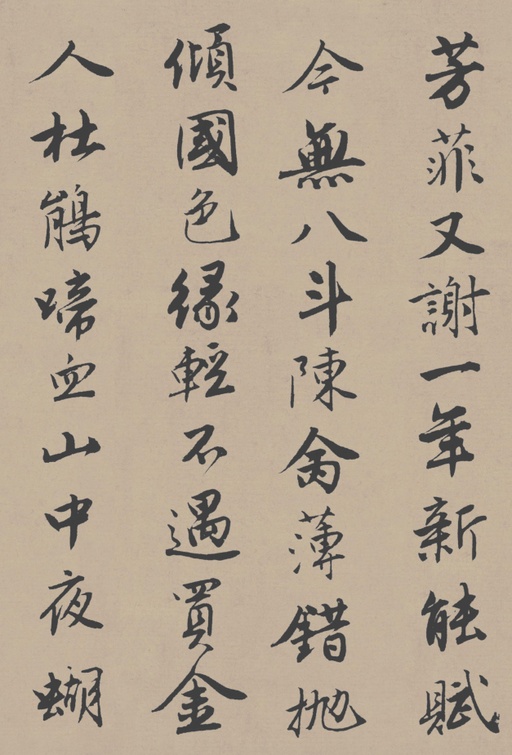 芳菲又謝一年新能賦
今無八斗陳禽薄錯拋
傾國色緣輕不遇買金
人杜鵑啼血山中夜蝴